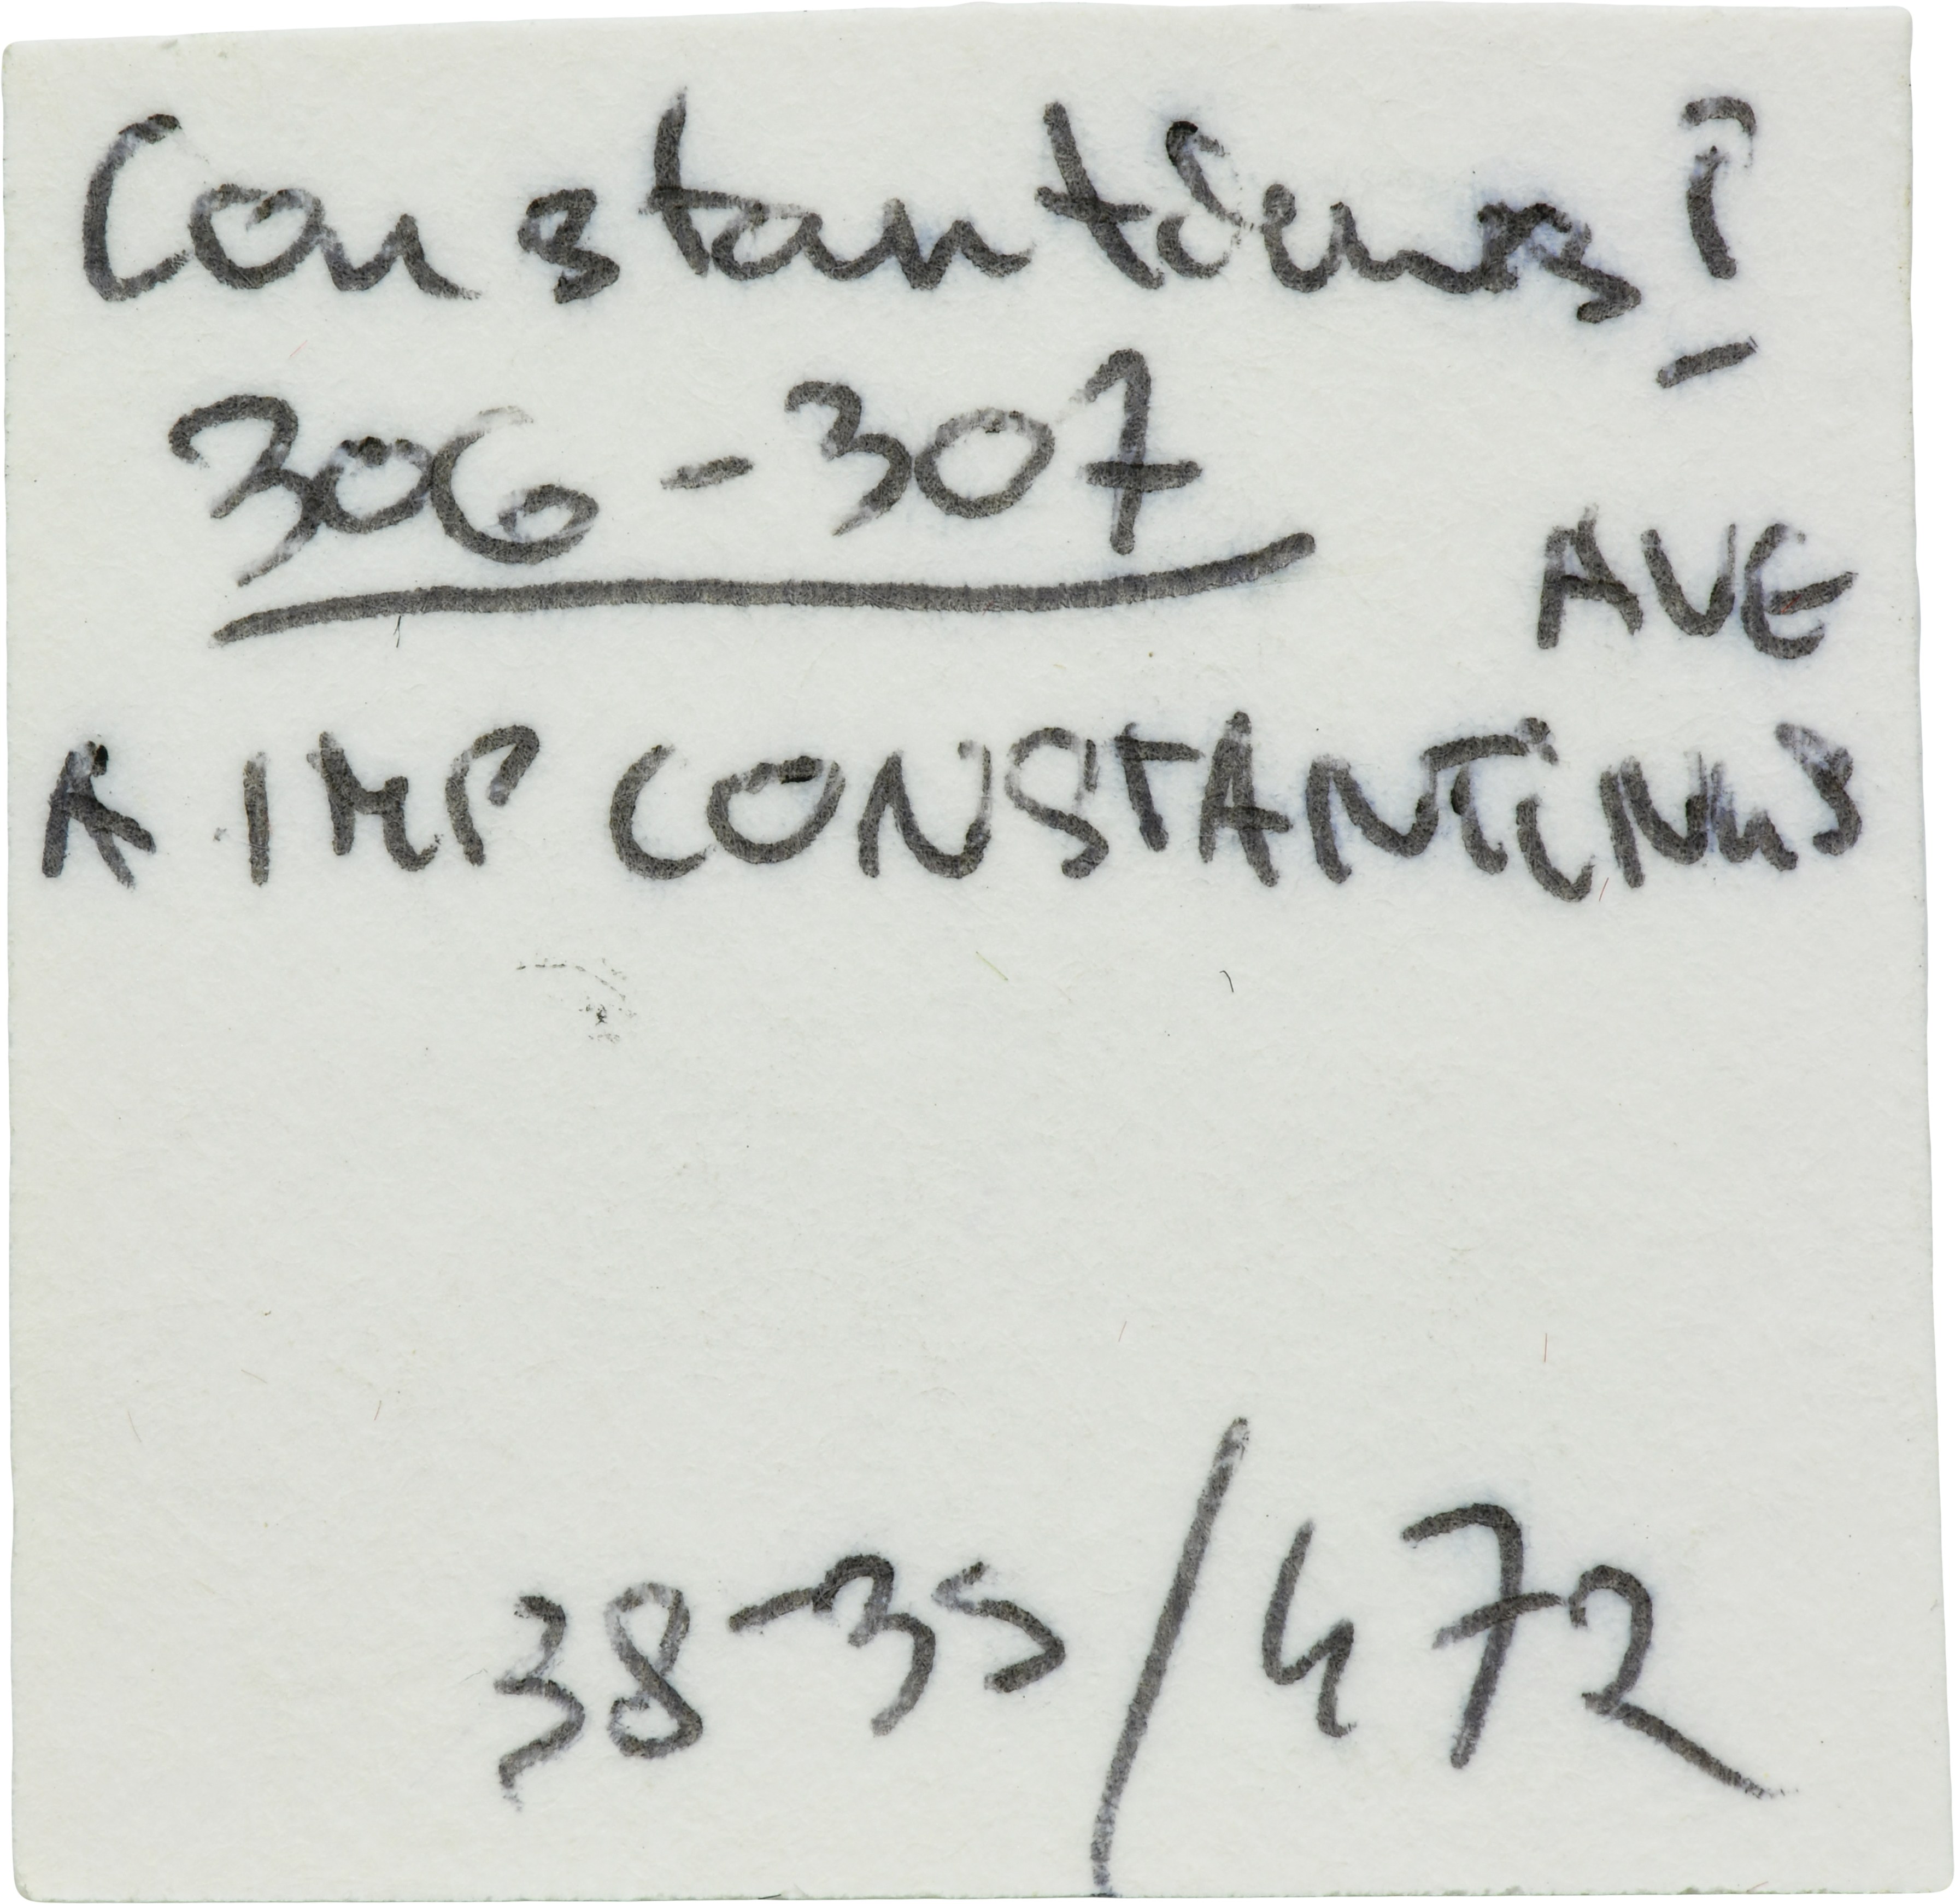 Constantinus I
306-307
AVG
A IMP CONSTANTINUS
38-35/472